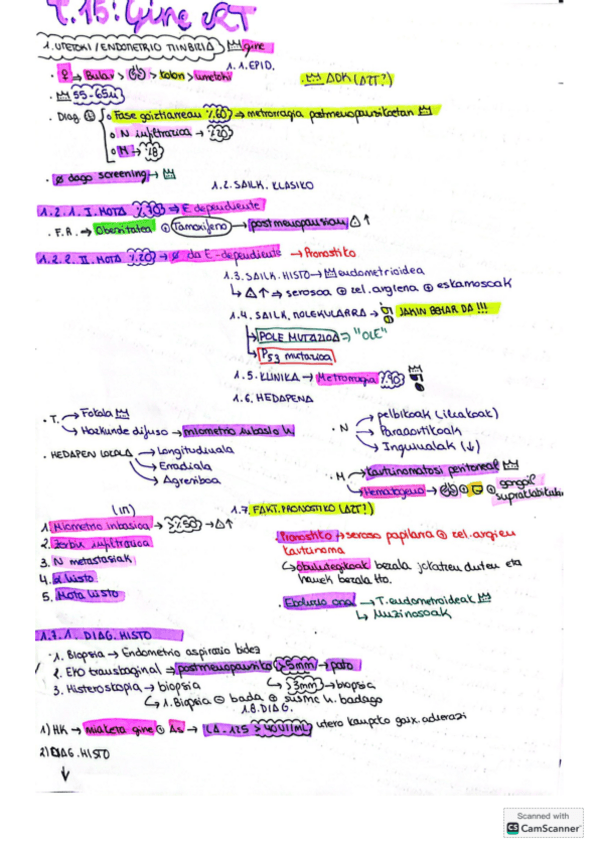 T.15: Gine RT
1. UTEROKI/ENDOMETRIO MINBIZIA gine
1.1. EPID.
♀ ⇒ Bular > > kolon > umetoki
ADK (ART?)
55-65u
Diag Fase goiztiarrean %60 → metrorragia postmenopausikoetan
N infiltrazioa → %20
M → %8
Ø dago screening →
1.2. SAILK. KLASIKO
1.2.1. I. MOTA %80 ⇒ E dependiente
F.R. → Obesitatea + Tamoxifeno → postmenopausian △ ↑
1.2.2. II. MOTA %20 → Ø da E-dependiente → Pronostiko
1.3. SAILK. HISTO → endometrioidea
↳ △ ↑ ⇒ serosoa + zel. argiena + eskamosoak
1.4. SAILK. MOLEKULARRA → JAKIN BEHAR DA !!!
POLE MUTAZIOA ⇒ "OLE"
P53 mutazioa
1.5. KLINIKA → Metrorragia %90
1.6. HEDAPENA
T. → Fokala
→ Hazkunde difuso → miometrio
N → pelbikoak (iliakoak)
→ Paraaortikoak
→ Inguinalak (↓)
HEDAPEN LOKALA → Longitudinala
→ Erradiala
→ Agresiboa
M → karzinomatosi peritoneal
→ Hematogeno → gongoil supraklabikular
1.7. FAKT. PRONOSTIKO (ART?)
(in)
1. Miometrio inbasioa → >%50 → △ ↑
2. Zerbix infiltrazioa
3. N metastasiak
4. G. histo
5. Mota histo
Pronostiko → seroso papilarra + zel. argien kartzinoma
↳ obulutegikoak bezala jokatzen dute eta hauek bezala tto.
Eboluzio ona → T. endometrioideak
↳ Muzinosoak
1.7.1. DIAG. HISTO
1. Biopsia → Endometrio aspirazio bidez
2. EKO transbaginal → postmenopausiko >5mm → pato
↳ >3mm → biopsia
3. Histeroskopia → biopsia
↳ 1. Biopsia ⊖ bada + susmo h. badago
1.8. DIAG.
1) HK → miaketa gine + As → CA-125 > 40UI/ML utero kanpoko gaix. adierazi
2) DIAG. HISTO
↓
Scanned with
CS CamScanner